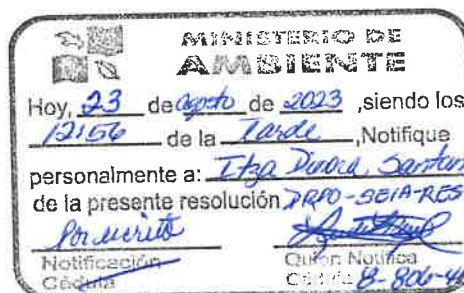 MINISTERIO DE
AMBIENTE
Hoy, 23 de agosto de 2023 ,siendo los
12:56 de la tarde ,Notifique
personalmente a: Itza Santan
de la presente resolución DRPO-SEIA-RES
Por escrito
Notificación Quien Notifica
Cédula Cédula 8-806-4